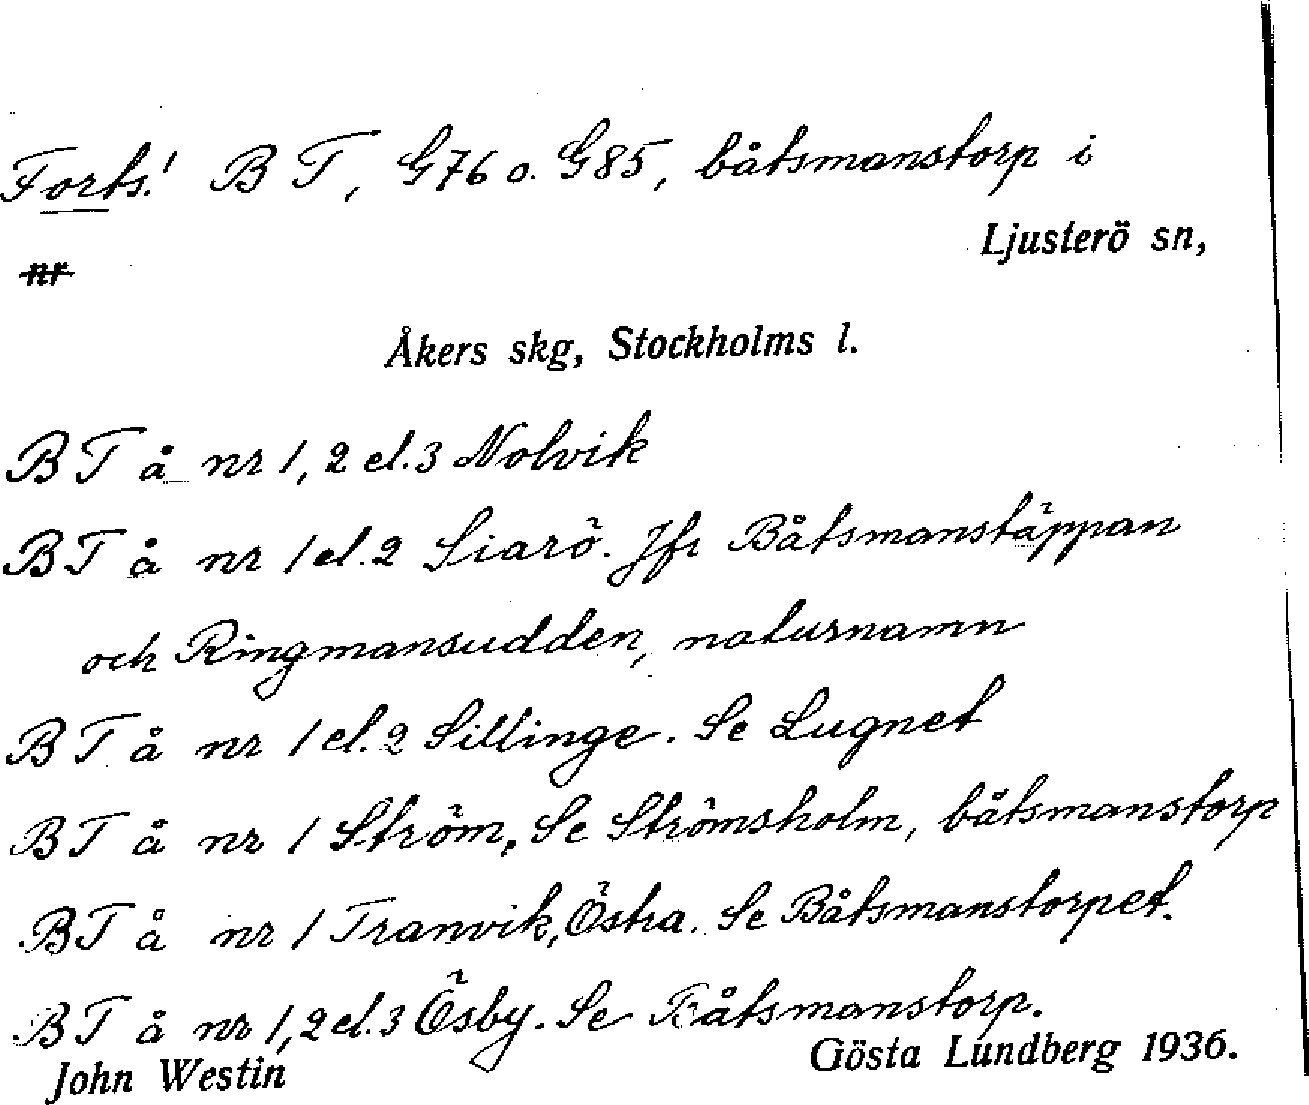 Forts.! B T, G76 o. G85, båtsmanstorp i
Ljusterö sn,
nr
Åkers skg, Stockholms l.
BT å nr 1, 2 el. 3 Nolvik
BT å nr 1 el. 2 Siarö. Jfr Båtsmanstäppan
och Ringmansudden, naturnamn
BT å nr 1 el. 2 Sillinge. Se Lugnet
BT å nr 1 Ström. Se Strömsholm, båtsmanstorp
BT å nr 1 Tranvik, Östra. Se Båtsmanstorpet.
BT å nr 1, 2 el. 3 Ösby. Se Båtsmanstorp.
John Westin Gösta Lundberg 1936.